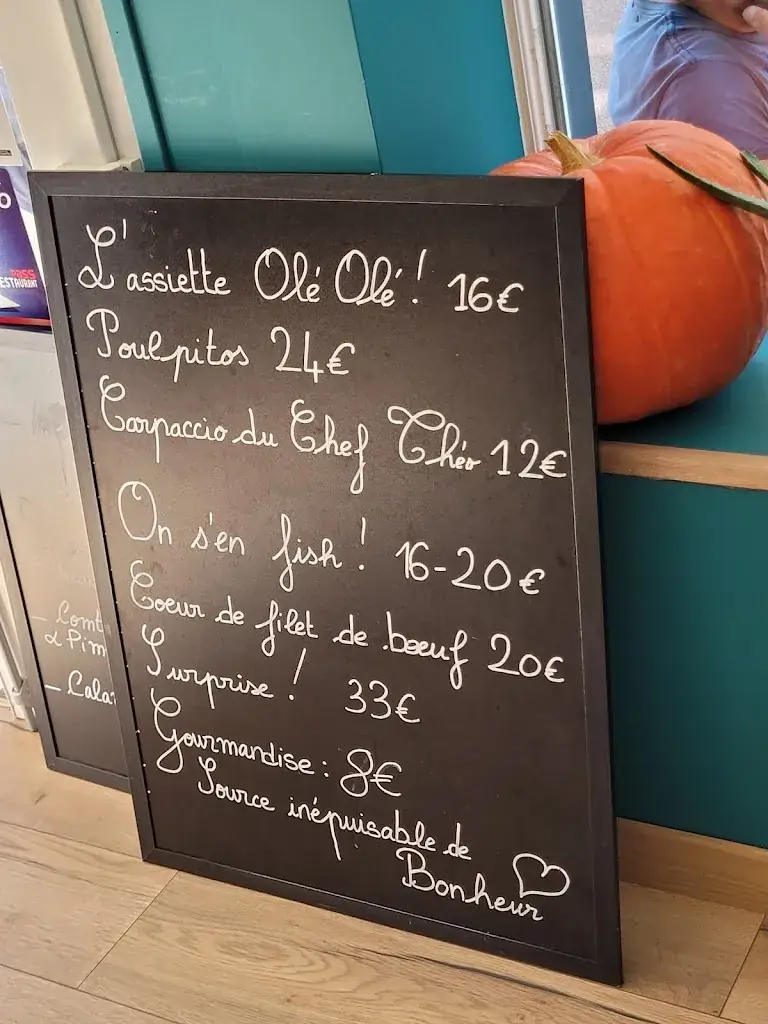 L'assiette Olé Olé ! 16€
Poulpitos 24€
Carpaccio du Chef Théo 12€
On s'en fish ! 16-20€
Coeur de filet de bœuf 20€
Surprise ! 33€
Gourmandise : 8€
Source inépuisable de
Bonheur
PASS
RESTAURANT